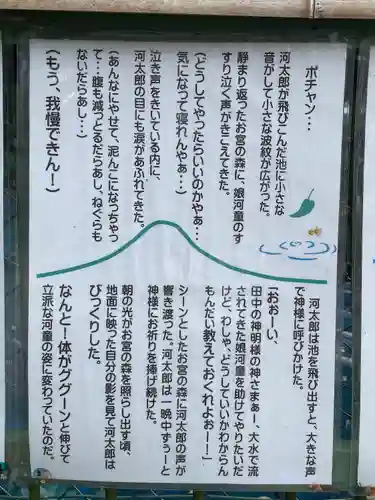 ポチャン…
河太郎が飛びこんだ池に小さな
音がして小さな波紋が広がった。
静まり返ったお宮の森に、娘河童のす
すり泣く声がきこえてきた。
(どうしてやったらいいのかやぁ…
気になって寝れんやぁ…)
泣き声をきいている内に、
河太郎の目にも涙があふれてきた。
(あんなにやせて、泥んこになっちゃっ
て…腹も減っとるだらあし、ねぐらも
ないだらあし…)
(もう、我慢できん!)
河太郎は池を飛び出すと、大きな声
で神様に呼びかけた。
「おおーい、
田中の神明様の神さまぁー、大水で流
されてきた娘河童を助けてやりたいだ
けど、わしゃ、どうしていいかわからん
もんだい教えておくれよおーー」
シーンとしたお宮の森に河太郎の声が
響き渡った。河太郎は一晩中ずぅーと
神様にお祈りを捧げ続けた。
朝の光がお宮の森を照らし出す頃、
地面に映った自分の影を見て河太郎は
びっくりした。
なんと!体がググーンと伸びて
立派な河童の姿に変わっていたのだ。